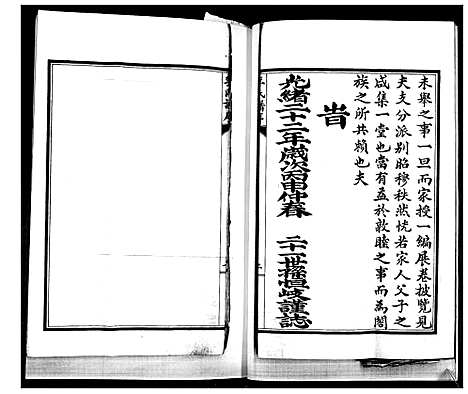 未舉之事一旦而家授一編展卷披覽見
夫支分派别昭穆秩然恍若家人父子之
咸集一堂也當有益於敦睦之事而為闔
族之所共賴也夫
旹
光緒二十二年歲次丙申仲春 二十一世孫恒岐謹誌